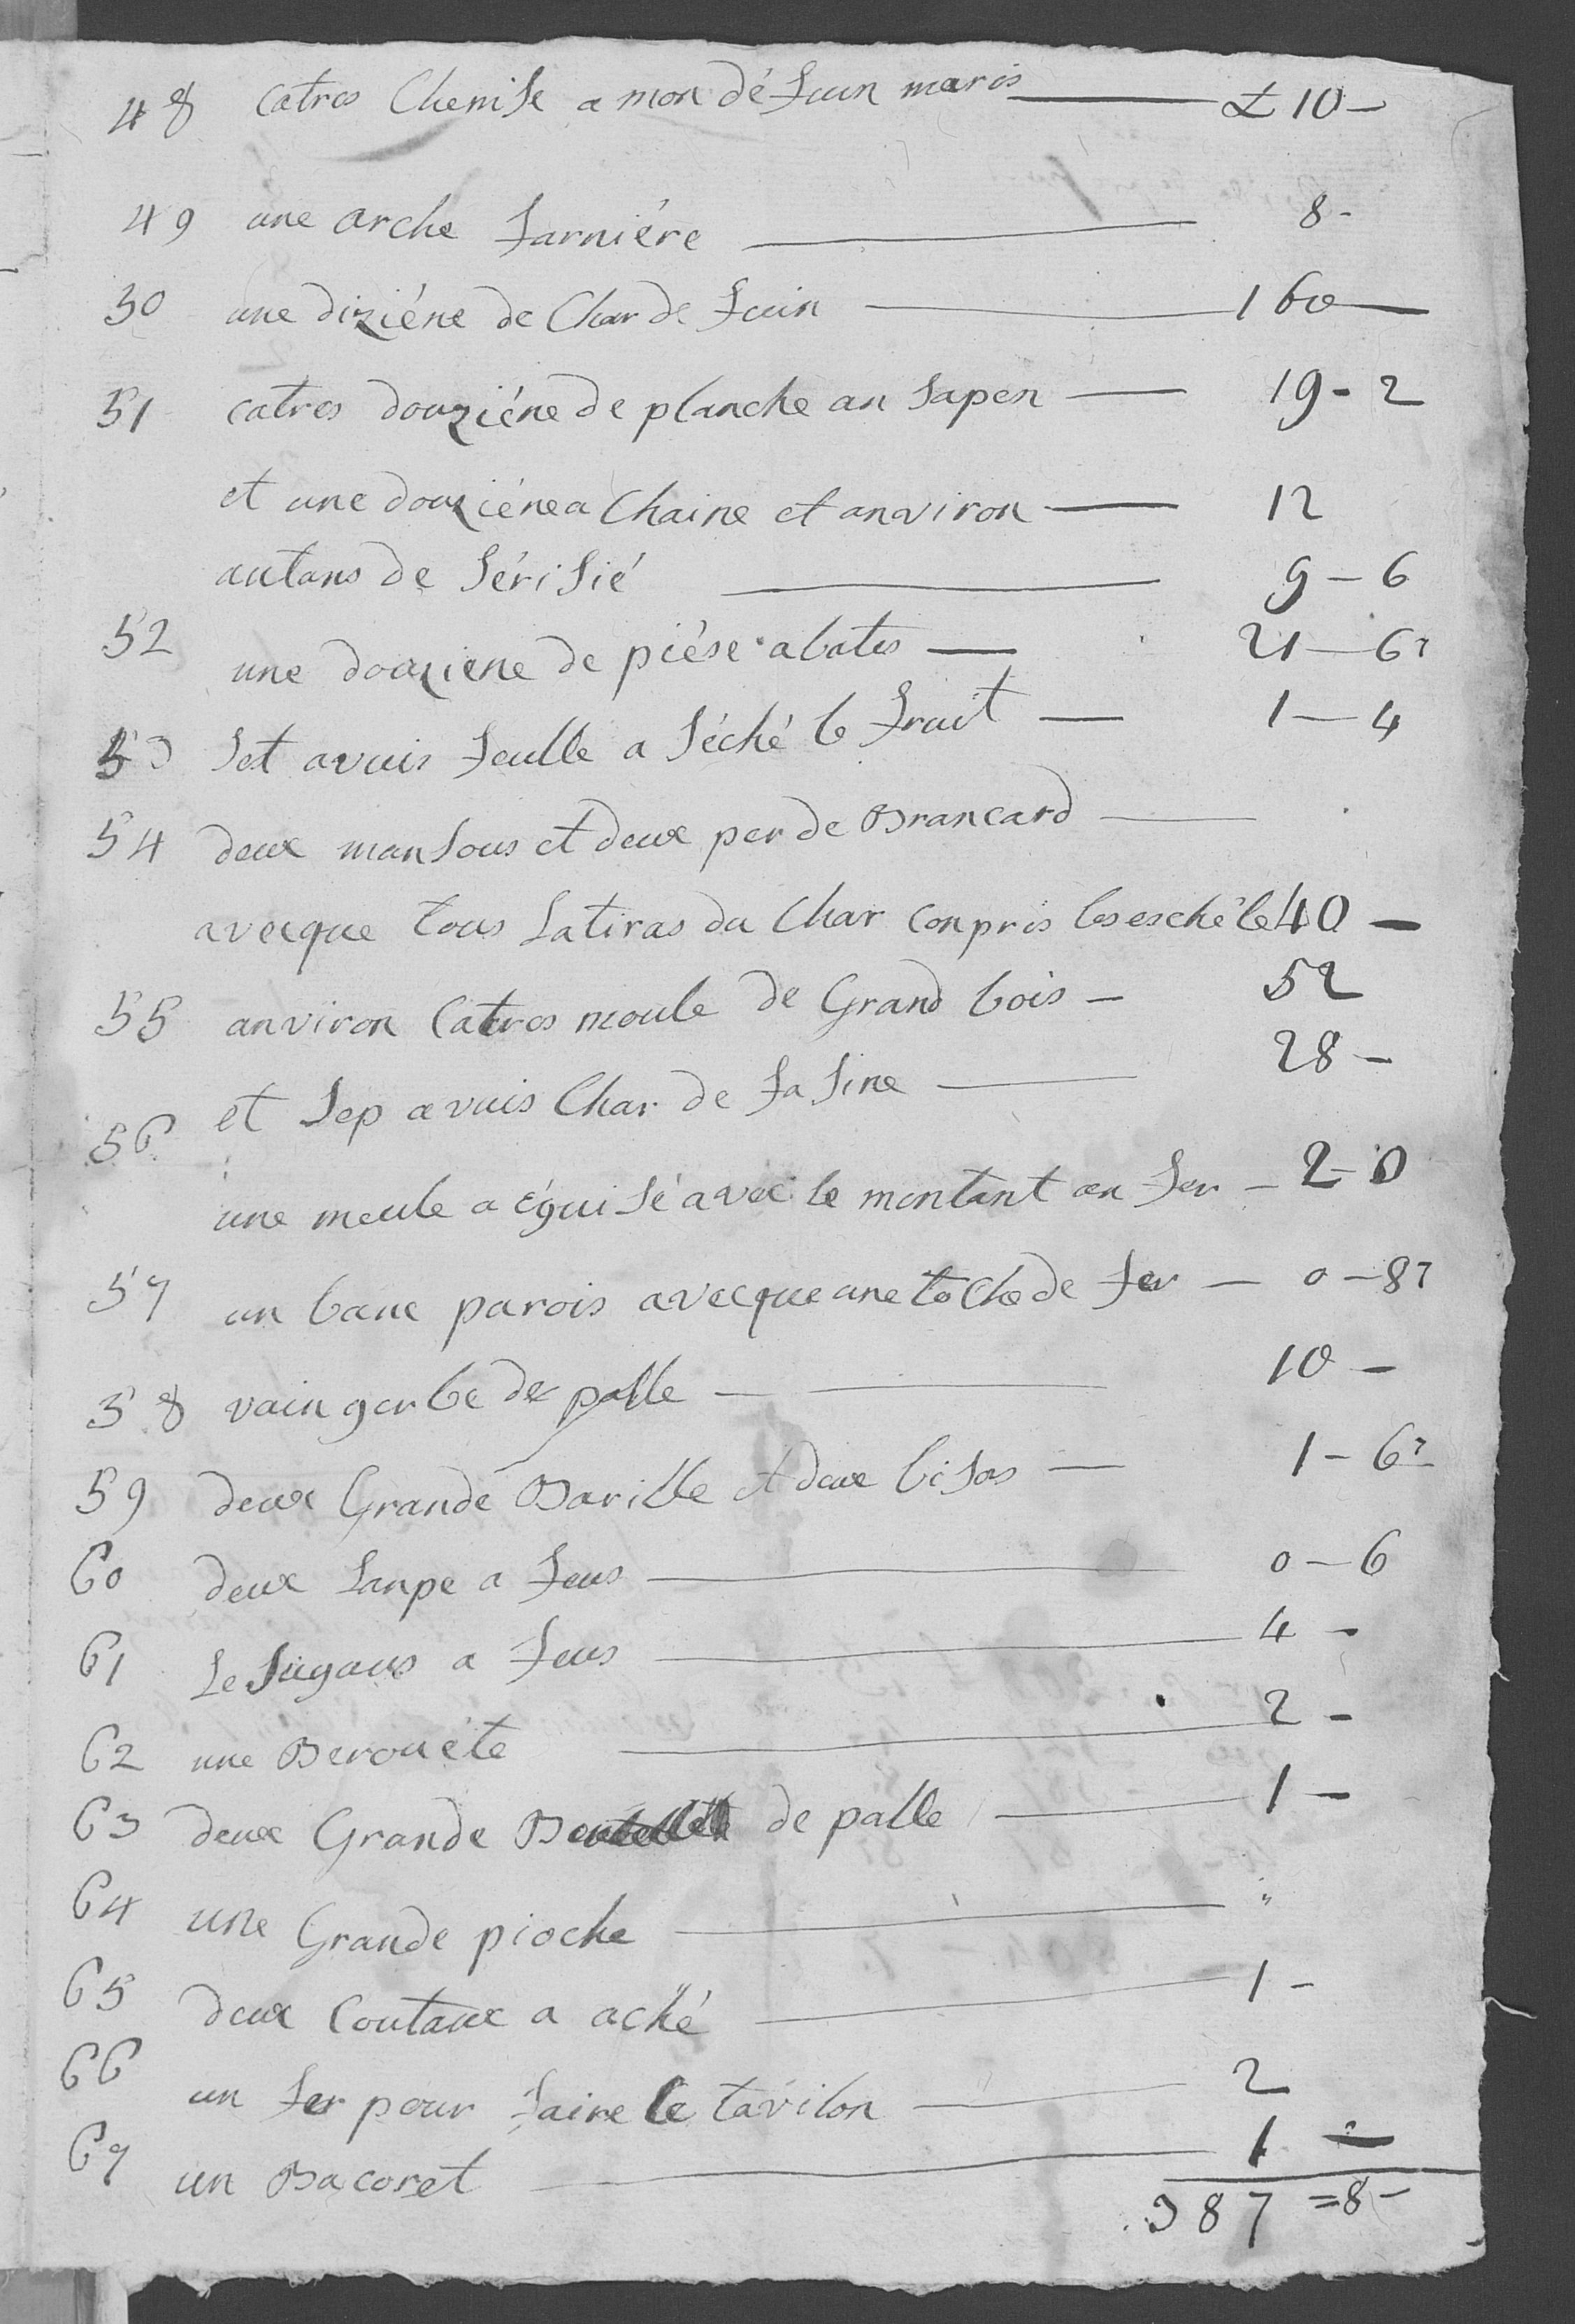 48 catres Chemise a mon défeun maris — £ 10 —
49 une arche farniére — 8 -
50 une diziéne de Char de fuin — 160 —
51 catres douziéne de planche an sapen — 19 - 2
et une douziéne a Chaine et anviron — 12
autans de sérisié — 9 — 6
52 une douziene de piése abates — 21 — 6 2
53 set avuis feulle a séché le fruit — 1 — 4
54 deux mansous et deux per de Brancard —
avecque tous latiras du Char conpris les eschéle 40 —
55 anviron Catres moule de Grand bois — 52
et sep avuis Char de fasine — 28 —
56 une meule a éguisé avec le montant an fer — 2 - 0
57 un banc parois avecque une to Che de fer — 0 — 8 2
58 vain gerbe de palle — 10 —
59 deux Grande Barille et deux bisas — 1 - 6 2
60 deux lanpe a feus — 0 — 6
61 Le sugaus a feus — 4 -
62 une Berouéte — 2 -
63 deux Grande de palle — 1 —
64 une Grande pioche — "
65 deux Coutaux a aché — 1 -
66 un fer pour faire le tavilon — 2
67 un Bacoret — 1 =
387 = 8 -